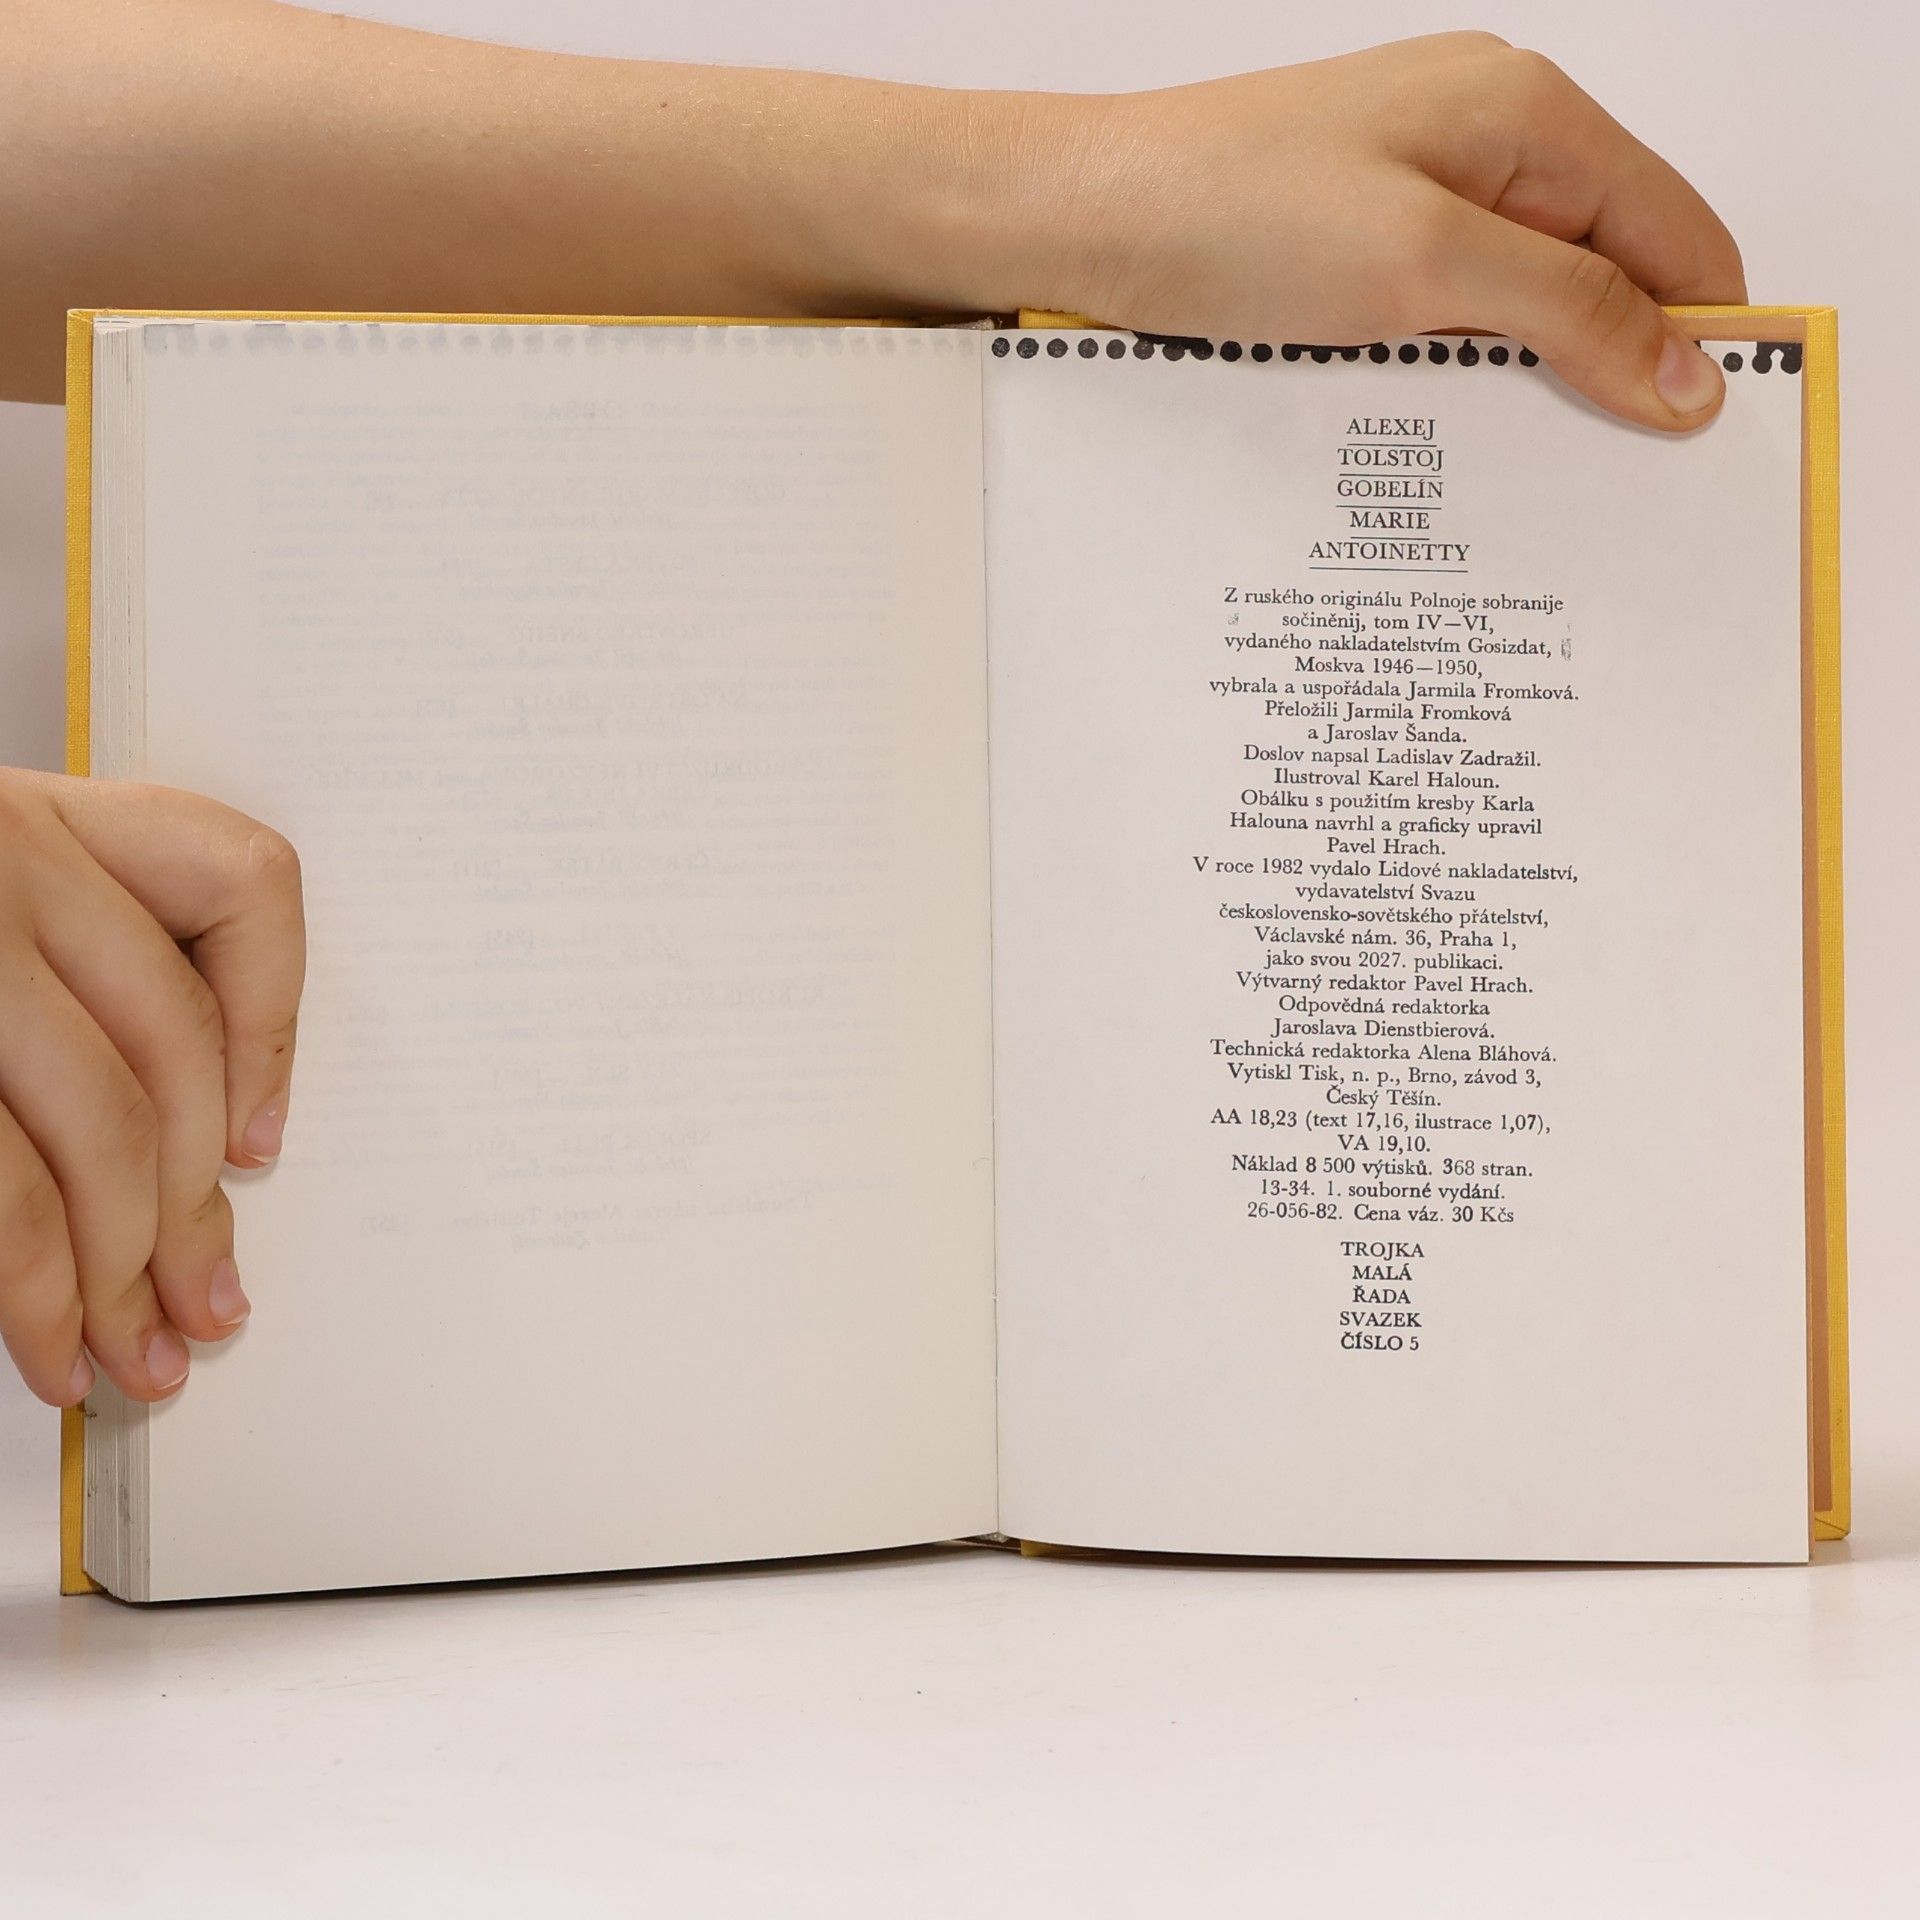 ALEXEJ
TOLSTOJ
GOBELÍN
MARIE
ANTOINETTY
Z ruského originálu Polnoje sobranije
sočiněnij, tom IV—VI,
vydaného nakladatelstvím Gosizdat,
Moskva 1946—1950,
vybrala a uspořádala Jarmila Fromková.
Přeložili Jarmila Fromková
a Jaroslav Šanda.
Doslov napsal Ladislav Zadražil.
Ilustroval Karel Haloun.
Obálku s použitím kresby Karla
Halouna navrhl a graficky upravil
Pavel Hrach.
V roce 1982 vydalo Lidové nakladatelství,
vydavatelství Svazu
československo-sovětského přátelství,
Václavské nám. 36, Praha 1,
jako svou 2027. publikaci.
Výtvarný redaktor Pavel Hrach.
Odpovědná redaktorka
Jaroslava Dienstbierová.
Technická redaktorka Alena Bláhová.
Vytiskl Tisk, n. p., Brno, závod 3,
Český Těšín.
AA 18,23 (text 17,16, ilustrace 1,07),
VA 19,10.
Náklad 8 500 výtisků. 368 stran.
13-34. 1. souborné vydání.
26-056-82. Cena váz. 30 Kčs
TROJKA
MALÁ
ŘADA
SVAZEK
ČÍSLO 5